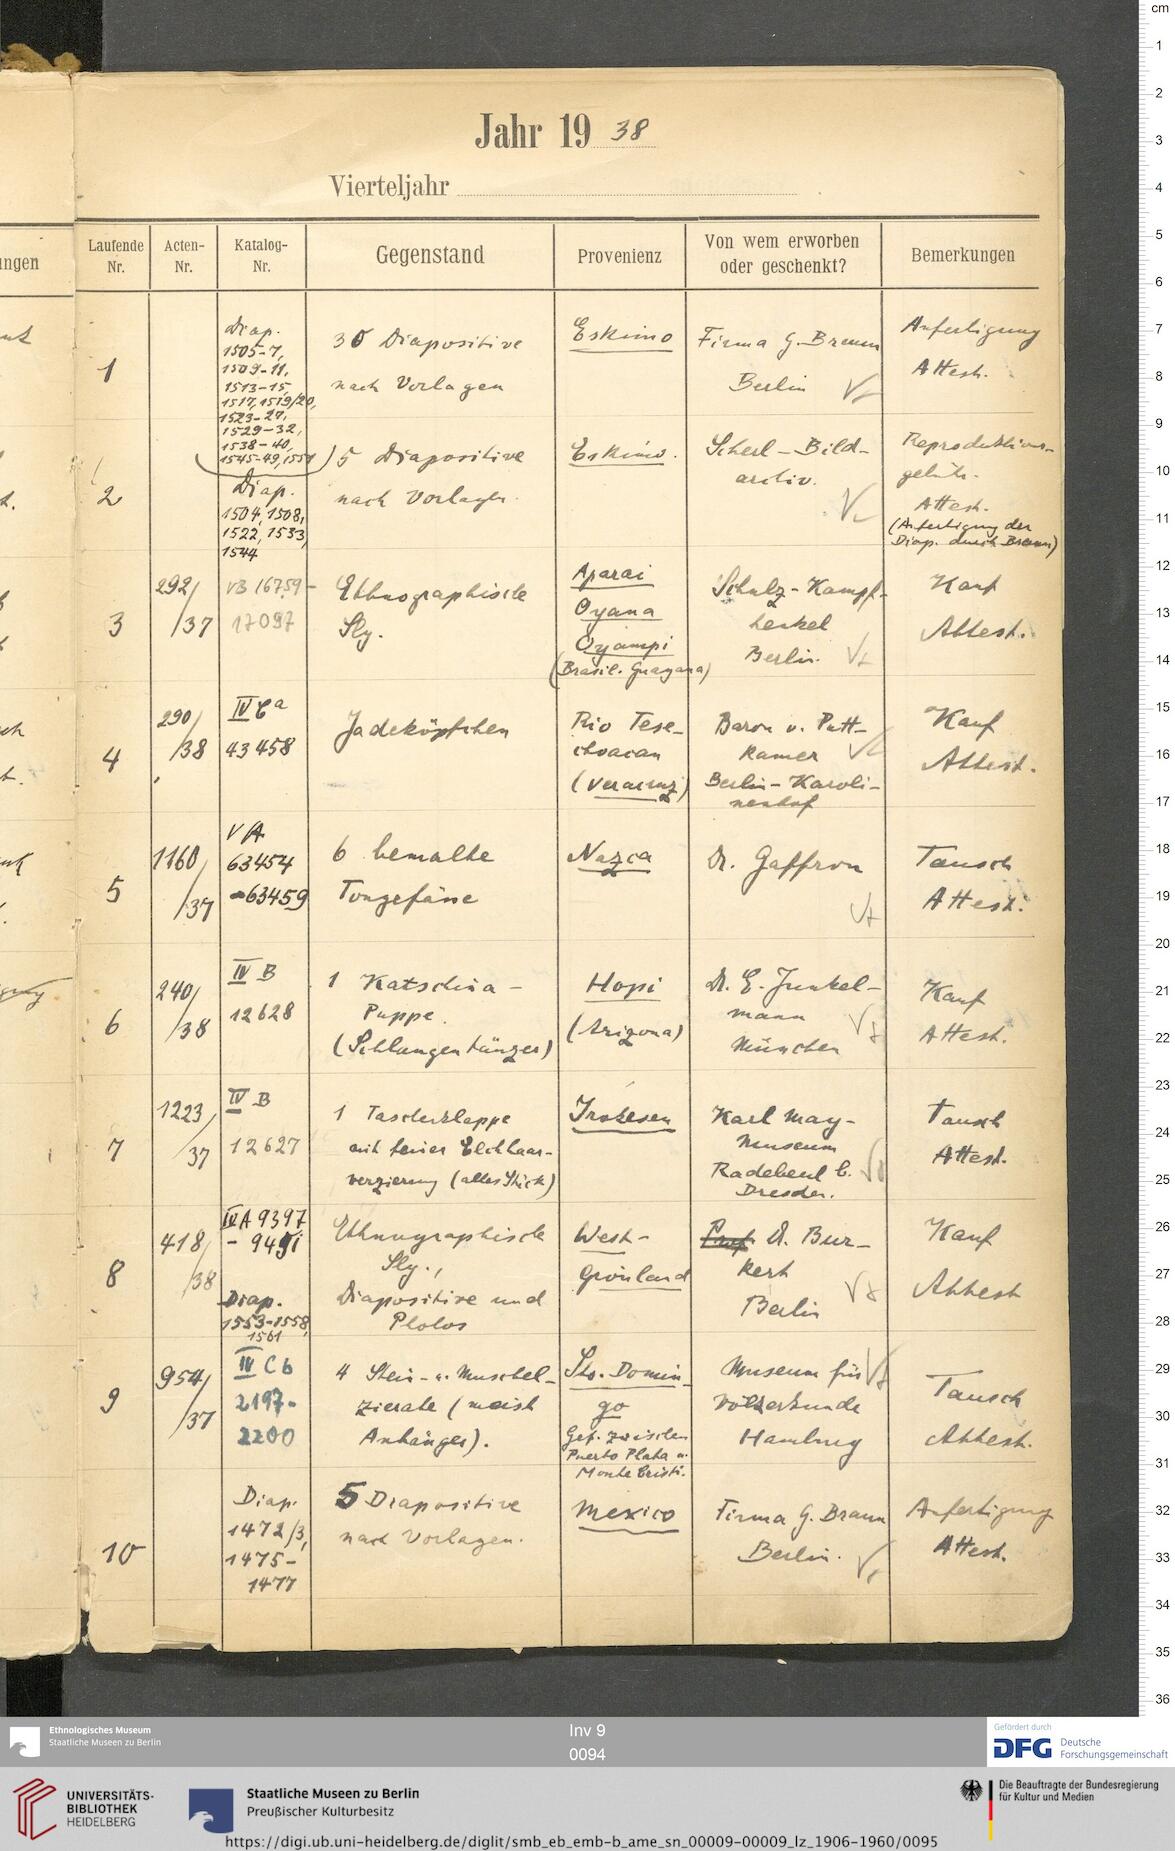 Jahr 19 38
Vierteljahr
Laufende Nr.
Acten-Nr.
Katalog-Nr.
Gegenstand
Provenienz
Von wem erworben oder geschenkt?
Bemerkungen
1
Diap.
1505-7,
1509-11,
1513-15,
1517, 1519/20,
1523-27,
1529-32,
1538-40,
1545-49, 1551
30 Diapositive
nach Vorlagen
Eskimo
Firma G. Braun
Berlin
Anfertigung
Attest.
2
Diap.
1504, 1508,
1522, 1533,
1544
5 Diapositive
nach Vorlagen.
Eskimo.
Scherl-Bild-
archiv.
Reproduktions-
gebühr.
Attest.
(Anfertigung der
Diap. durch Braun)
3
292/
/37
VB 16759-
17097
Ethnographische
Slg.
Aparai
Oyana
Oyampi
(Brasil. Guayana)
Schulz-Kampf-
henkel
Berlin.
Kauf
Attest.
4
290/
/38
IV Ca
43458
Jadeköpfchen
Rio Tese-
choacan
(Veracruz)
Baron v. Putt-
kamer
Berlin-Karoli-
nenhof
Kauf
Attest.
5
1160/
/37
VA
63454
-63459
6 bemalte
Tongefässe
Nazca
Dr. Gaffron
Tausch
Attest.
6
240/
/38
IV B
12628
1 Katschina-
Puppe.
(Schlangentänzer)
Hopi
(Arizona)
Dr. E. Junkel-
mann
München
Kauf
Attest.
7
1223/
/37
IV B
12627
1 Taschenklappe
mit feiner Elchhaar-
verzierung (altes Stück)
Irokesen
Karl May-
Museum
Radebeul b.
Dresden.
Tausch
Attest.
8
418/
/38
IVA 9397
- 9491
Diap.
1553-1558,
1561
Ethnographische
Slg.,
Diapositive und
Photos
West-
Grönland
Prof. Dr. Bur-
kert
Berlin
Kauf
Attest
9
954/
/37
IV Cb
2197-
2200
4 Stein- u. Muschel-
zierate (meist
Anhänger).
Sto. Domin-
go
Gef. zwischen
Puerto Plata u.
Monte Cristi.
Museum für
Völkerkunde
Hamburg
Tausch
Attest.
10
Diap.
1472/3,
1475-
1477
5 Diapositive
nach Vorlagen.
Mexico
Firma G. Braun
Berlin.
Anfertigung
Attest.
cm
1
2
3
4
5
6
7
8
9
10
11
12
13
14
15
16
17
18
19
20
21
22
23
24
25
26
27
28
29
30
31
32
33
34
35
36
Ethnologisches Museum
Staatliche Museen zu Berlin
Inv 9
0094
Gefördert durch
DFG Deutsche
Forschungsgemeinschaft
UNIVERSITÄTS-
BIBLIOTHEK
HEIDELBERG
Staatliche Museen zu Berlin
Preußischer Kulturbesitz
Die Beauftragte der Bundesregierung
für Kultur und Medien
https://digi.ub.uni-heidelberg.de/diglit/smb_eb_emb-b_ame_sn_00009-00009_lz_1906-1960/0095